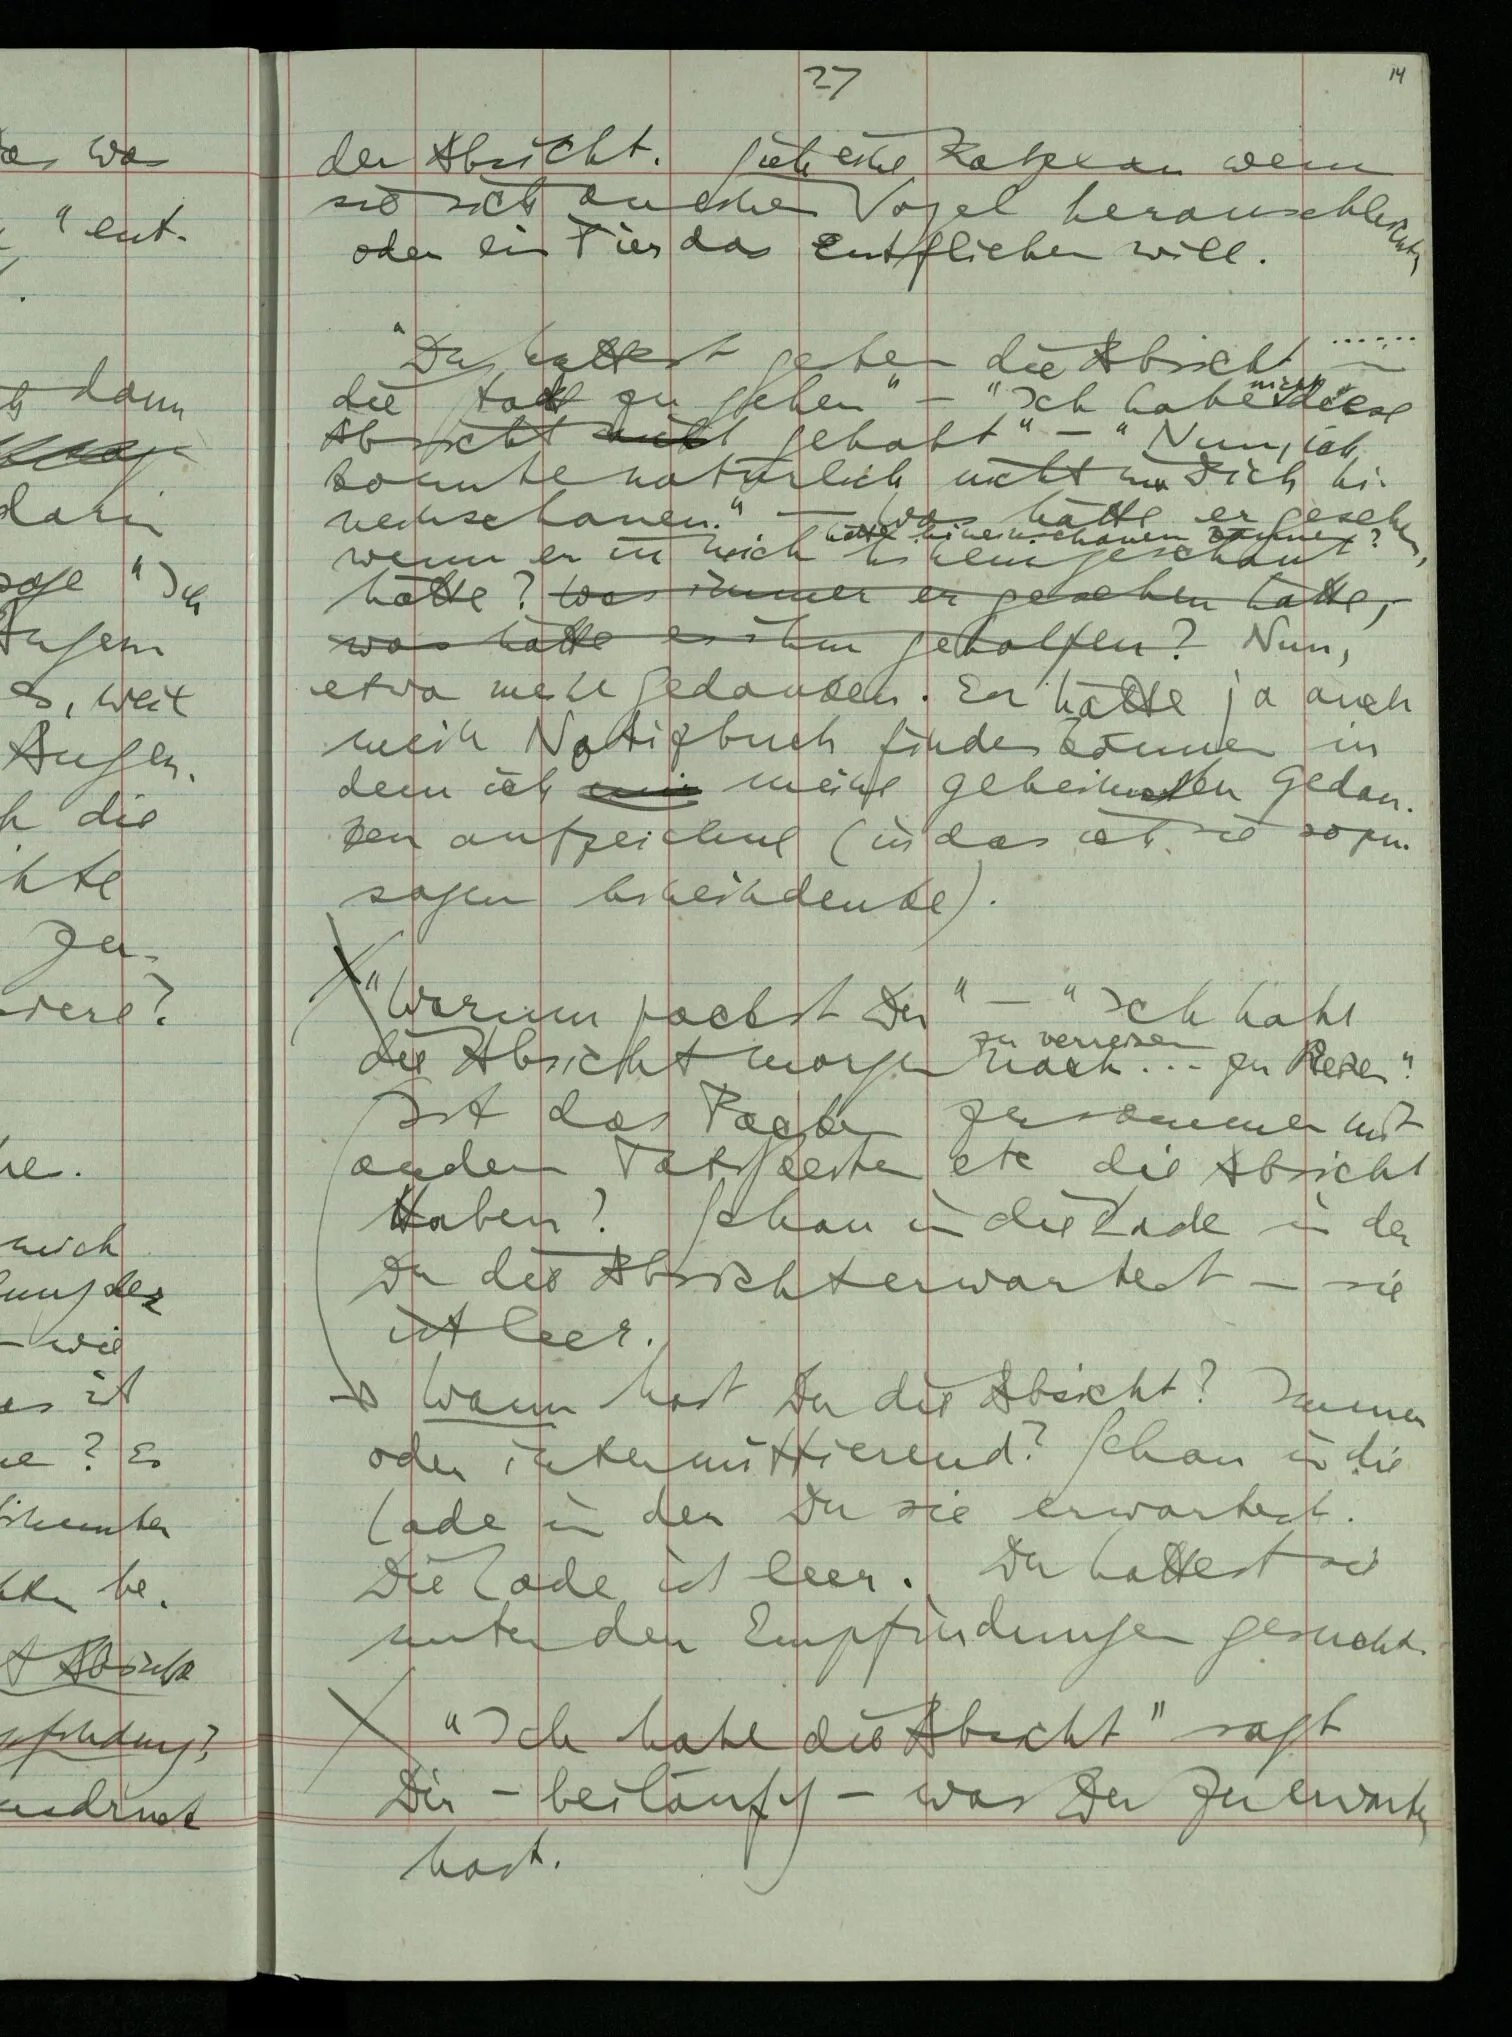 as was
" ent-
dann
darin
sage "Ich
Augen
es, weit
Augen.
h die
hte
zu-
iere?
ne.
mich
ung der
– wie
es ist
ne? Es
be.
Absicht
pfindung?
usdruck
27
14
der Absicht. Sieh eine Katze an wenn
sie sich an einen Vogel heranschleicht,
oder ein Tier das entfliehen will.
"Du hattest gestern die Absicht ...... in
die Stadt zu gehen" – "Ich habe nicht diese
Absicht nicht gehabt" – "Nun, ich
konnte natürlich nicht in Dich hi-
neinschauen." – Was hätte er gesehen,
hätte hineinschauen können?
wenn er in mich hineingeschaut
hätte? Was immer er gesehen hätte,
was hätte es ihm geholfen? Nun,
etwa meine Gedanken. Er hätte ja auch
mein Notizbuch finden können in
dem ich mir meine geheimsten Gedan-
ken aufzeichne (in das ich sie sozu-
sagen hineindenke).
"Warum packst Du" – "Ich habe
zu verreisen
die Absicht morgen nach ... zu Reisen".
Ist das Packen zusammen mit
andern Tatsachen etc die Absicht
Haben? Schau in die Lade in der
Du die Absicht erwartest – sie
ist leer.
→ Wann hast Du die Absicht? Immer
oder intermittierend? Schau in die
Lade in der Du sie erwartest.
Die Lade ist leer. Du hattest sie
unter den Empfindungen gesucht.
"Ich habe die Absicht" sagt
Dir – beiläufig – was Du zu erwarten
hast.